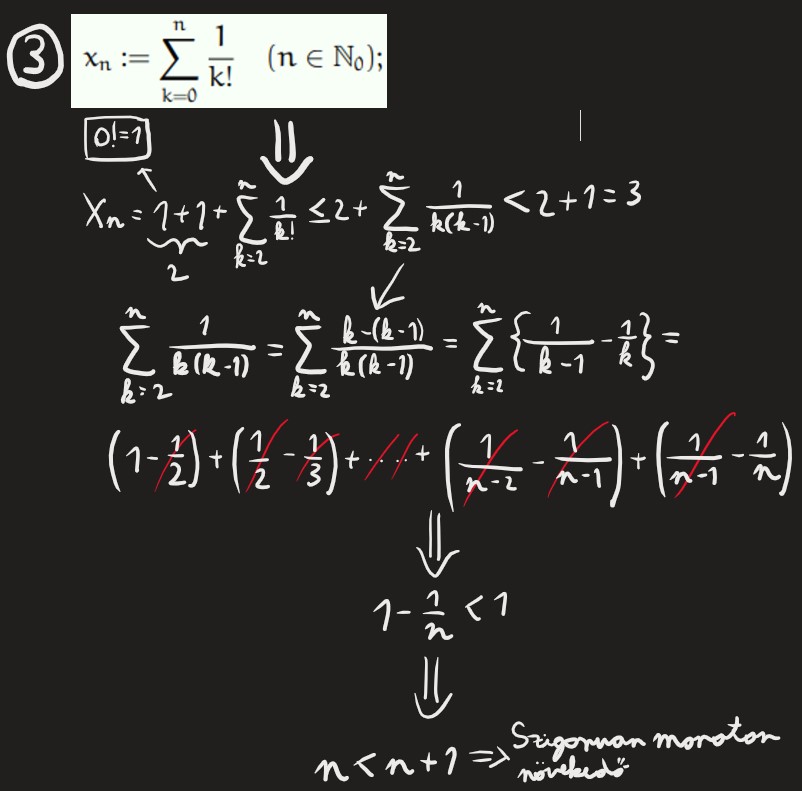 ③ xₙ := ∑_{k=0}^{n} 1/k! (n ∈ ℕ₀);
0!=1
⇓
Xₙ = 1+1+ ∑_{k=2}^{n} 1/k! ≤ 2+ ∑_{k=2}^{n} 1/(k(k-1)) < 2+1=3
2
∑_{k=2}^{n} 1/(k(k-1)) = ∑_{k=2}^{n} (k-(k-1))/(k(k-1)) = ∑_{k=2}^{n} {1/(k-1) - 1/k} =
(1 - 1/2) + (1/2 - 1/3) + .... + (1/(n-2) - 1/(n-1)) + (1/(n-1) - 1/n)
⇓
1 - 1/n < 1
⇓
n < n+1 => Szigoruan monoton
növekedő